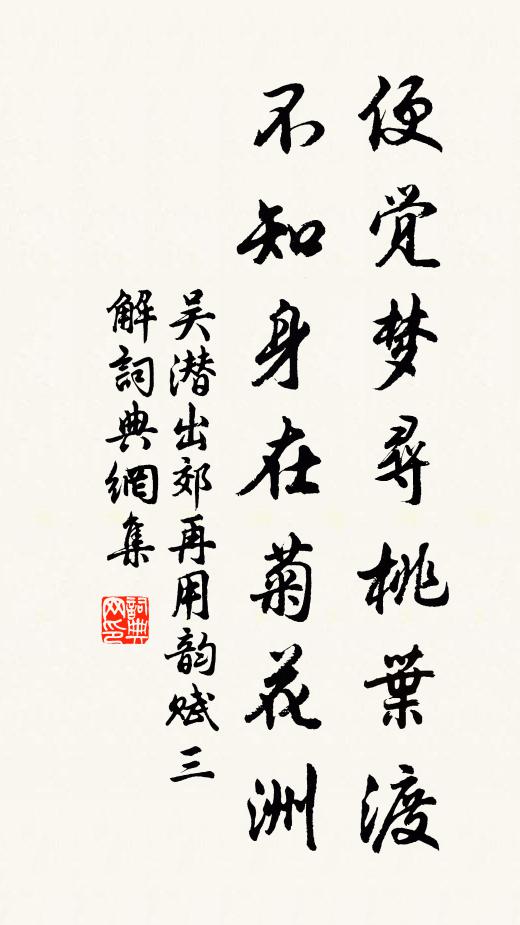 便觉梦尋桃葉渡
不知身在菊花洲
吴潜出郊再用韵赋三
解詞典網集
詞典网印